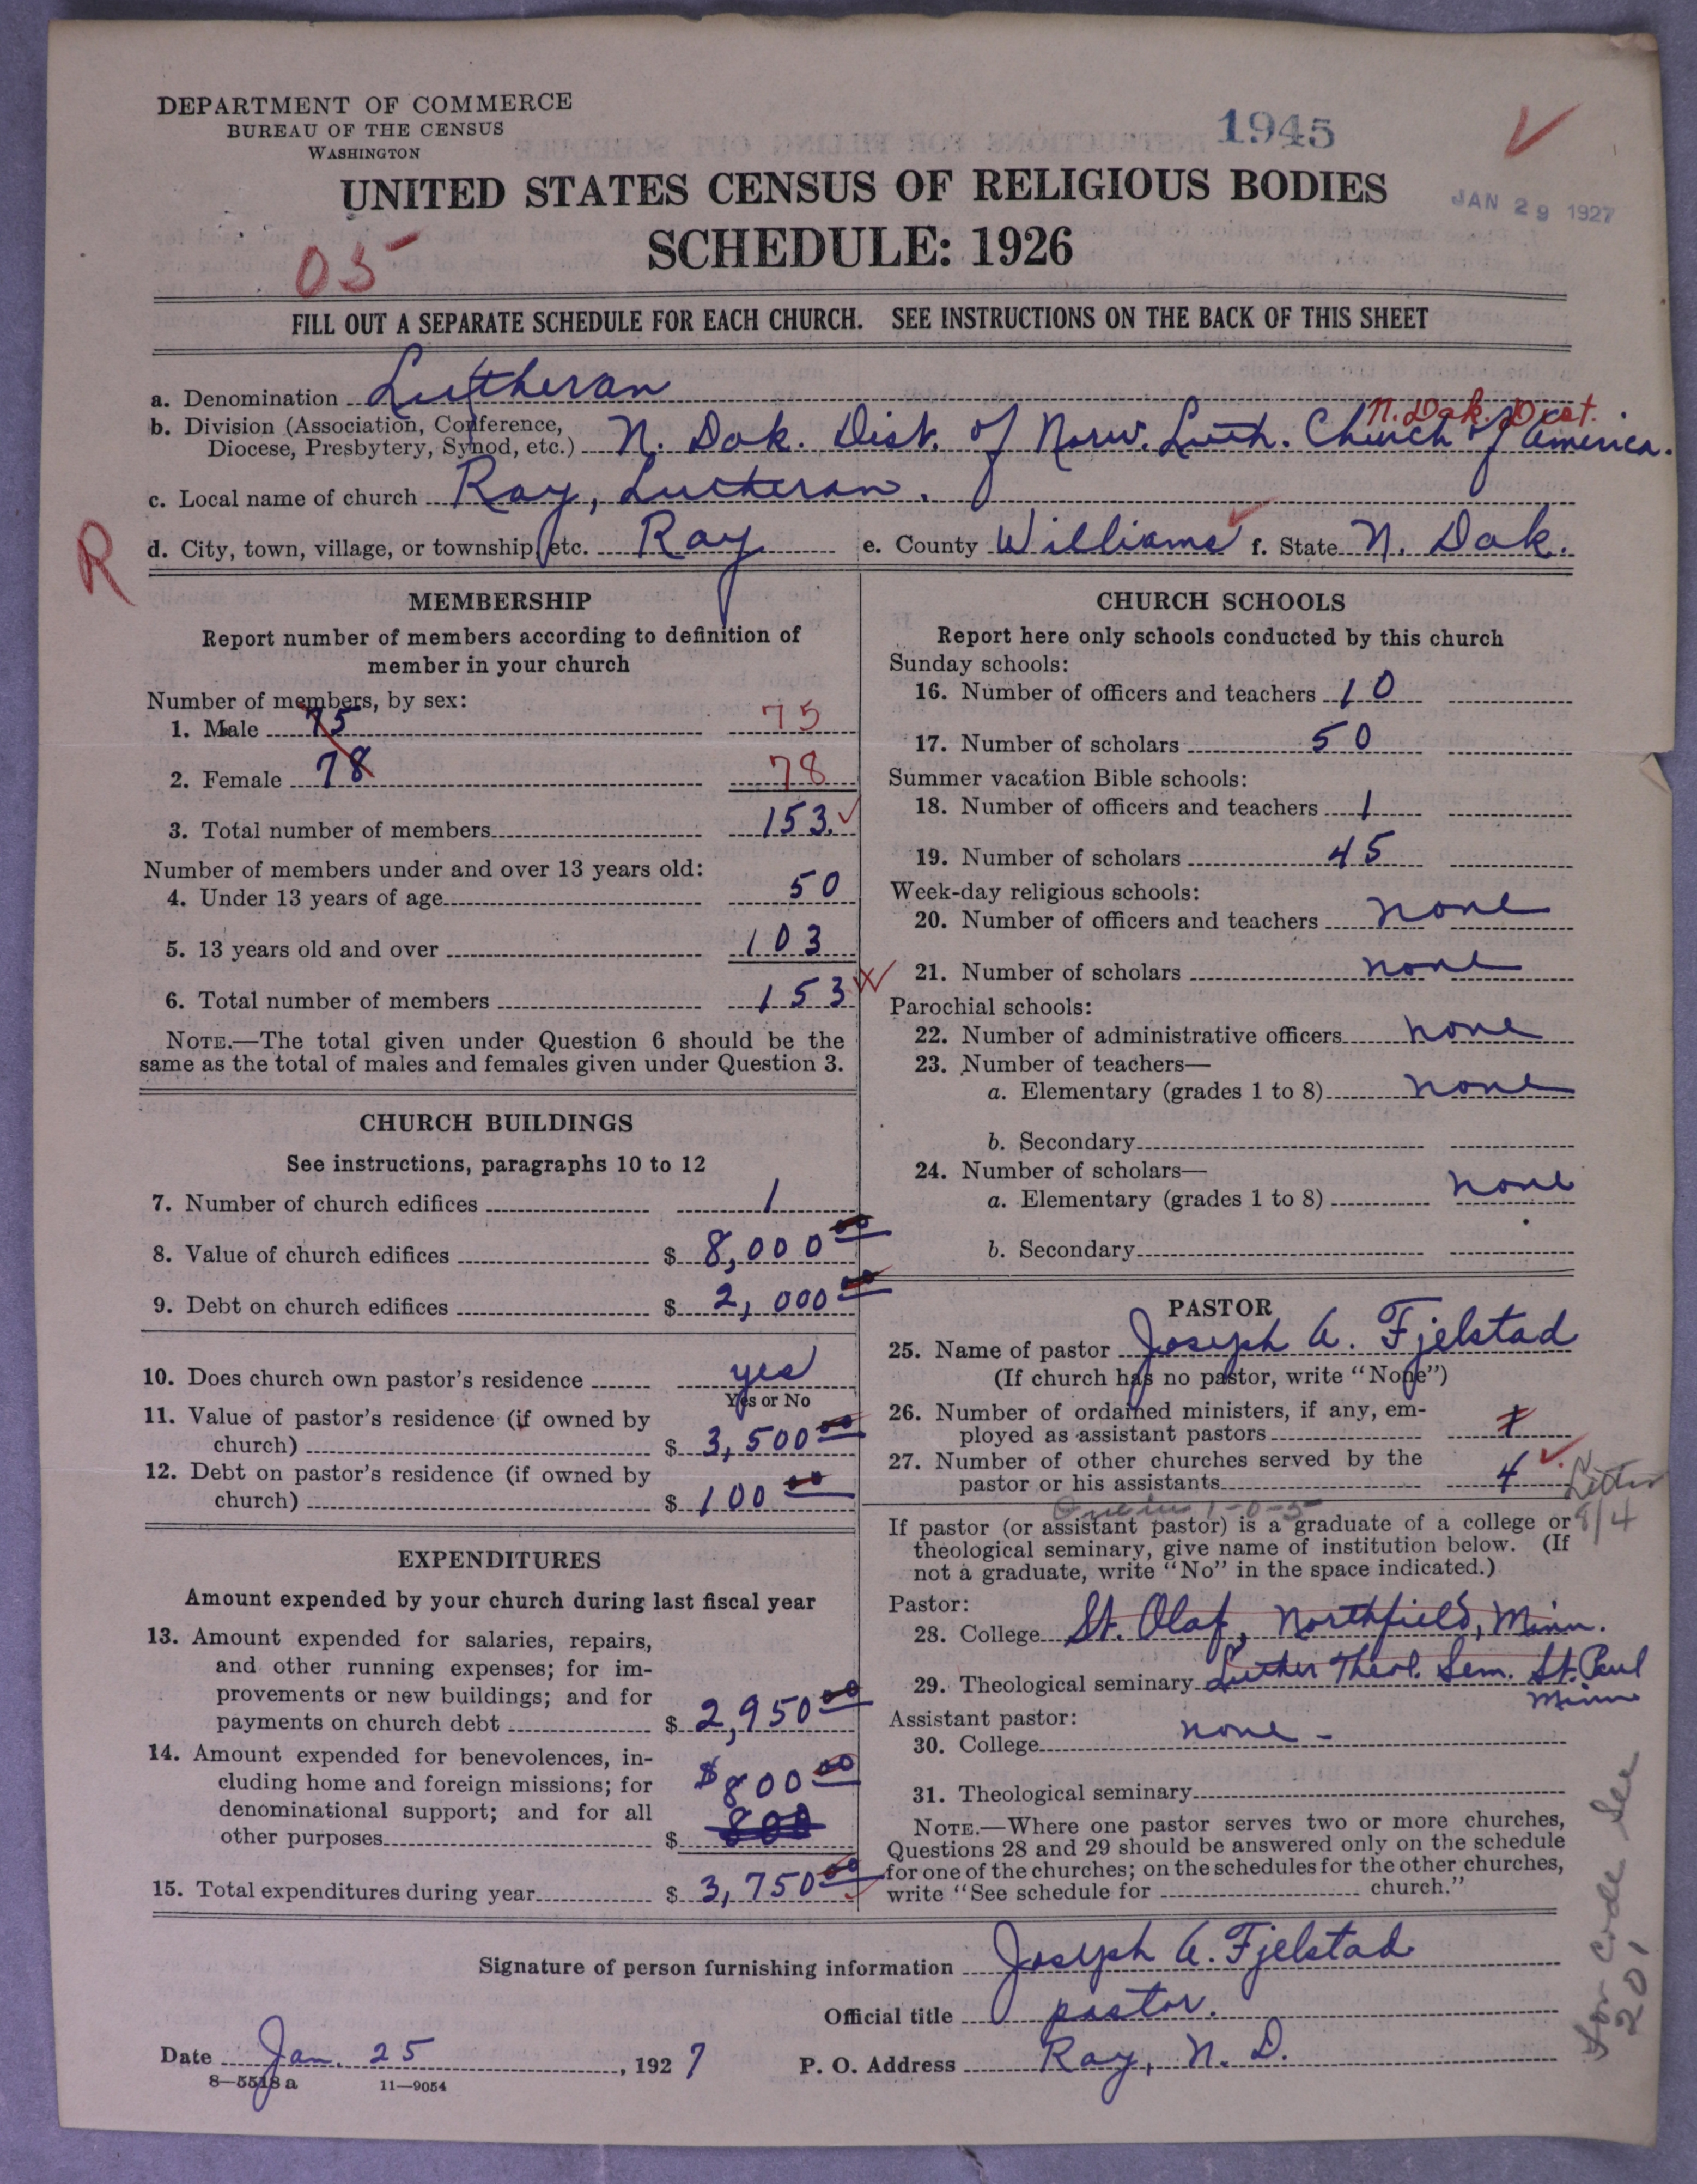 DEPARTMENT OF COMMERCE
BUREAU OF THE CENSUS
WASHINGTON
1945
UNITED STATES CENSUS OF RELIGIOUS BODIES
JAN 29 1927
SCHEDULE: 1926
05
FILL OUT A SEPARATE SCHEDULE FOR EACH CHURCH. SEE INSTRUCTIONS ON THE BACK OF THIS SHEET
a. Denomination Lutheran
N. Dak. Dist.
b. Division (Association, Conference,
Diocese, Presbytery, Synod, etc.) N. Dak. Dist. of Norw. Luth. Church of America.
c. Local name of church Ray, Lutheran.
R
d. City, town, village, or township, etc. Ray e. County Williams f. State N. Dak.
MEMBERSHIP
Report number of members according to definition of
member in your church
Number of members, by sex:
1. Male 75 75
2. Female 78 78
3. Total number of members 153.
Number of members under and over 13 years old:
4. Under 13 years of age 50
5. 13 years old and over 103
6. Total number of members 153
NOTE.—The total given under Question 6 should be the
same as the total of males and females given under Question 3.
CHURCH BUILDINGS
See instructions, paragraphs 10 to 12
7. Number of church edifices 1
8. Value of church edifices $ 8,000 00
9. Debt on church edifices $ 2,000 00
10. Does church own pastor's residence yes
Yes or No
11. Value of pastor's residence (if owned by
church) $ 3,500 00
12. Debt on pastor's residence (if owned by
church) $ 100 00
EXPENDITURES
Amount expended by your church during last fiscal year
13. Amount expended for salaries, repairs,
and other running expenses; for im-
provements or new buildings; and for
payments on church debt $ 2,950 00
14. Amount expended for benevolences, in-
cluding home and foreign missions; for $800 00
denominational support; and for all
other purposes $ 800
15. Total expenditures during year $ 3,750 00
CHURCH SCHOOLS
Report here only schools conducted by this church
Sunday schools:
16. Number of officers and teachers 10
17. Number of scholars 50
Summer vacation Bible schools:
18. Number of officers and teachers 1
19. Number of scholars 45
Week-day religious schools:
20. Number of officers and teachers none
21. Number of scholars none
Parochial schools:
22. Number of administrative officers none
23. Number of teachers—
a. Elementary (grades 1 to 8) none
b. Secondary
24. Number of scholars—
a. Elementary (grades 1 to 8) none
b. Secondary
PASTOR
25. Name of pastor Joseph A. Fjelstad
(If church has no pastor, write "None")
26. Number of ordained ministers, if any, em-
ployed as assistant pastors
27. Number of other churches served by the
pastor or his assistants 4
Letter
8/4
1-0-5
If pastor (or assistant pastor) is a graduate of a college or
theological seminary, give name of institution below. (If
not a graduate, write "No" in the space indicated.)
Pastor:
28. College St. Olaf, Northfield, Minn.
29. Theological seminary Luther Theol. Sem. St. Paul
Minn
Assistant pastor:
30. College none -
31. Theological seminary
NOTE.—Where one pastor serves two or more churches,
Questions 28 and 29 should be answered only on the schedule
for one of the churches; on the schedules for the other churches,
write "See schedule for church."
For code see
201
Signature of person furnishing information Joseph A. Fjelstad
Official title pastor.
Date Jan. 25, 1927 P. O. Address Ray, N. D.
8—5518 a 11—9054